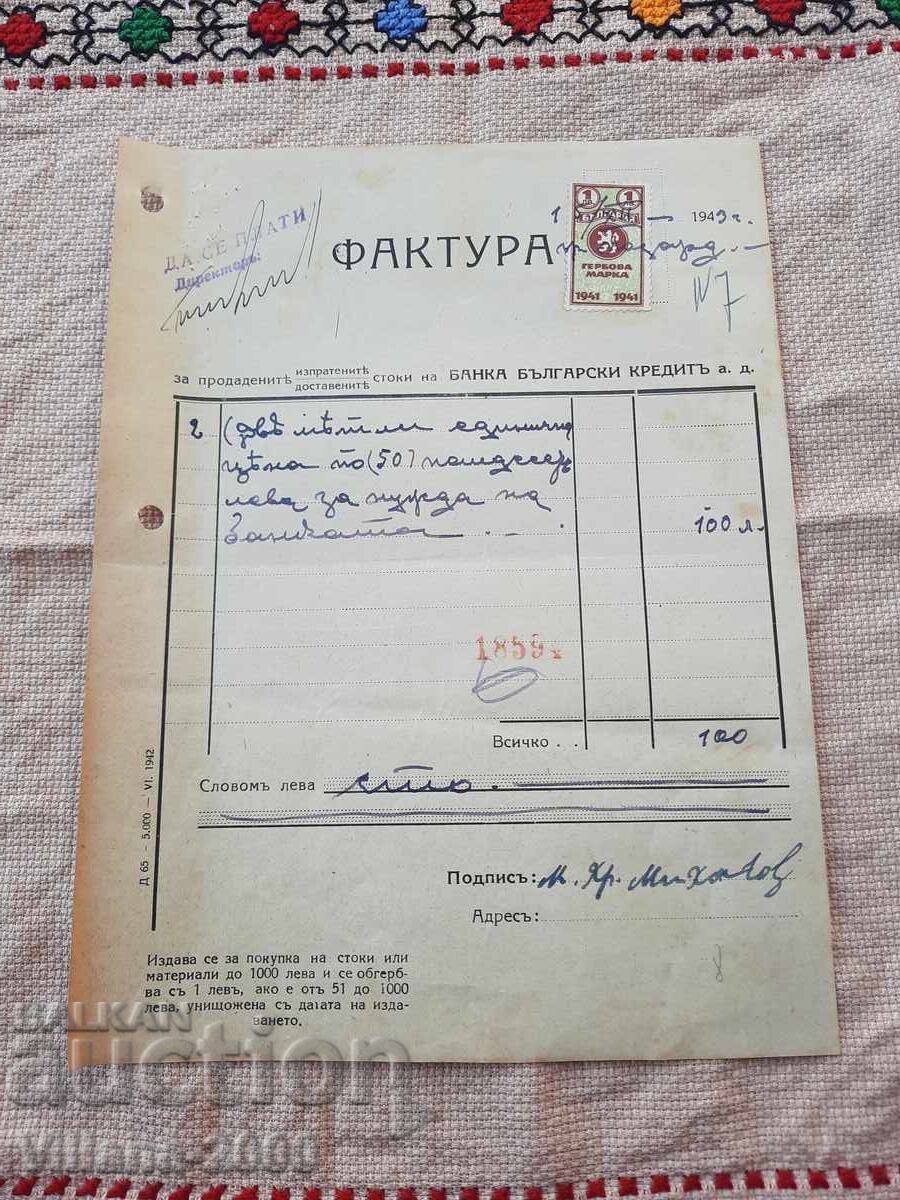 ДА СЕ ПЛАТИ
Директоръ:
ФАКТУРА
1 1943 г.
1 1
ГЕРБОВА
МАРКА
1941 1941
N 7
за продаденитѣ изпратенитѣ доставенитѣ стоки на БАНКА БЪЛГАРСКИ КРЕДИТЪ а. д.
2 (двѣ мѣтли единична
цѣна по (50) петдесеть
лева за нужда на
банката 100 л.
1859
Всичко . . 100
Словомъ лева сто.
Подписъ: М. Хр. Михайлов
Адресъ:
Д 65 - 5.000 — VI. 1942
Издава се за покупка на стоки или
материали до 1000 лева и се обгерб-
ва съ 1 левъ, ако е отъ 51 до 1000
лева, унищожена съ датата на изда-
ването.
BALKAN
auction
Viliana-2000